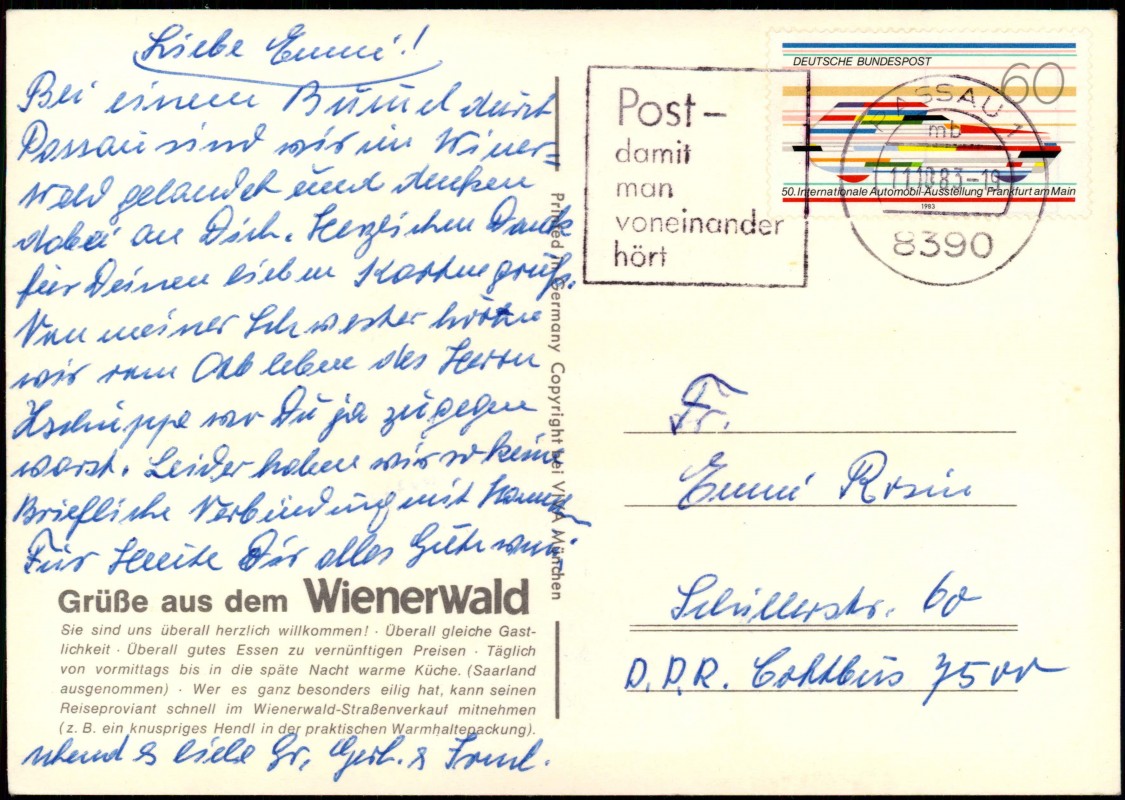 Liebe Emmi!
Bei einem Bummel durch
Passau sind wir im Wiener=
wald gelandet und denken
dabei an Dich. Herzlichen Dank
für Deinen lieben Kartengruß.
Von meiner Schwester hörten
wir vom Ableben des Herrn
Zschuppe wo Du ja zugegen
warst. Leider haben wir so keine
Briefliche Verbindung mit
Für Heute Dir alles Gute
Grüße aus dem Wienerwald
Sie sind uns überall herzlich willkommen! · Überall gleiche Gast-
lichkeit · Überall gutes Essen zu vernünftigen Preisen · Täglich
von vormittags bis in die späte Nacht warme Küche. (Saarland
ausgenommen) · Wer es ganz besonders eilig hat, kann seinen
Reiseproviant schnell im Wienerwald-Straßenverkauf mitnehmen
(z. B. ein knuspriges Hendl in der praktischen Warmhaltepackung).
Gr. Gerh. &
Printed in Germany Copyright bei VIVA München
Post-
damit
man
voneinander
hört
DEUTSCHE BUNDESPOST
60
50. Internationale Automobil-Ausstellung Frankfurt am Main
1983
PASSAU 1
mb
8390
Fr.
Emmi Rosin
Schillerstr. 60
D.D.R. Cottbus 7500